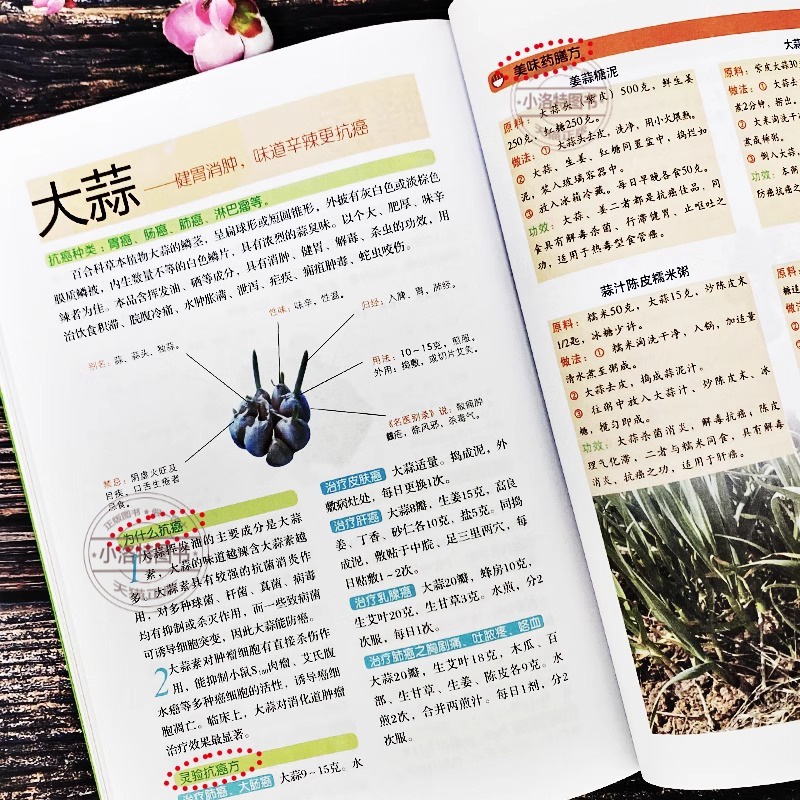 大蒜
——健胃消肿，味道辛辣更抗癌
抗癌种类：胃癌、肠癌、肺癌、淋巴瘤等。
百合科草本植物大蒜的鳞茎，呈扁球形或短圆锥形，外披有灰白色或淡棕色
膜质鳞被，内生数量不等的白色鳞片，具有浓烈的蒜臭味。以个大、肥厚、味辛
辣者为佳。本品含挥发油、硒等成分，具有消肿、健胃、解毒、杀虫的功效，用
治饮食积滞、脘腹冷痛、水肿胀满、泄泻、疟疾、痈疽肿毒、蛇虫咬伤。
性味：味辛，性温。
归经：入脾、胃、肺经。
别名：蒜、蒜头、独蒜。
用法：10～15克，煎服。
外用：捣敷，或切片艾灸。
《名医别录》说：散痈肿
疮，除风邪，杀毒气。
禁忌：阴虚火旺及
目疾、口舌生疮者
忌食。
为什么抗癌
1大蒜挥发油的主要成分是大蒜
素，大蒜的味道越辣含大蒜素越
多。大蒜素具有较强的抗菌消炎作
用，对多种球菌、杆菌、真菌、病毒
均有抑制或杀灭作用，而一些致病菌
可诱导细胞突变，因此大蒜能防癌。
2大蒜素对肿瘤细胞有直接杀伤作
用，能抑制小鼠S180肉瘤、艾氏腹
水癌等多种癌细胞的活性，诱导癌细
胞凋亡。临床上，大蒜对消化道肿瘤
治疗效果最显著。
灵验抗癌方
治疗肺癌、大肠癌 大蒜9～15克。水
治疗皮肤癌 大蒜适量。捣成泥，外
敷病灶处，每日更换1次。
治疗肝癌 大蒜8瓣，生姜15克，高良
姜、丁香、砂仁各10克，盐5克。同捣
成泥，敷贴于中脘、足三里两穴，每
日贴敷1～2次。
治疗乳腺癌 大蒜20瓣，蜂房10克，
生艾叶20克，生甘草3克。水煎，分2
次服，每日1次。
治疗肺癌之胸剧痛、吐脓疼、咯血
大蒜20瓣，生艾叶18克，木瓜、百
部、生甘草、生姜、陈皮各9克。水
煎2次，合并两煎汁。每日1剂，分2
次服。
美味药膳方
姜蒜糖泥
原料：大蒜头（带皮）500克，鲜生姜
250克，红糖250克。
做法：①大蒜头去皮，洗净，用小火煨熟。
②大蒜、生姜、红糖同置盆中，捣烂如
泥，装入玻璃容器中。
③放入冰箱冷藏。每日早晚各食50克。
功效：大蒜、姜二者都是抗癌佳品，同
食具有解毒杀菌、行滞健胃、止呕吐之
功，适用于热毒型食管癌。
蒜汁陈皮糯米粥
原料：糯米50克，大蒜15克，炒陈皮末
1/2匙，冰糖少许。
做法：①糯米淘洗干净，入锅，加适量
清水煮至粥成。
②大蒜去皮，捣成蒜泥汁。
③往粥中放入大蒜汁、炒陈皮末、冰
糖，搅匀即成。
功效：大蒜杀菌消炎，解毒抗癌；陈皮
理气化滞，二者与糯米同食，具有解毒
消炎、抗癌之功，适用于肝癌。
大蒜
原料：带皮大蒜30
做法：①大蒜去
煮2分钟，捞出。
②大米淘洗干
煮成稀粥。
③倒入大蒜，
功效：本粥
防癌抗癌之
小洛特图书
小洛特图书
正版图书